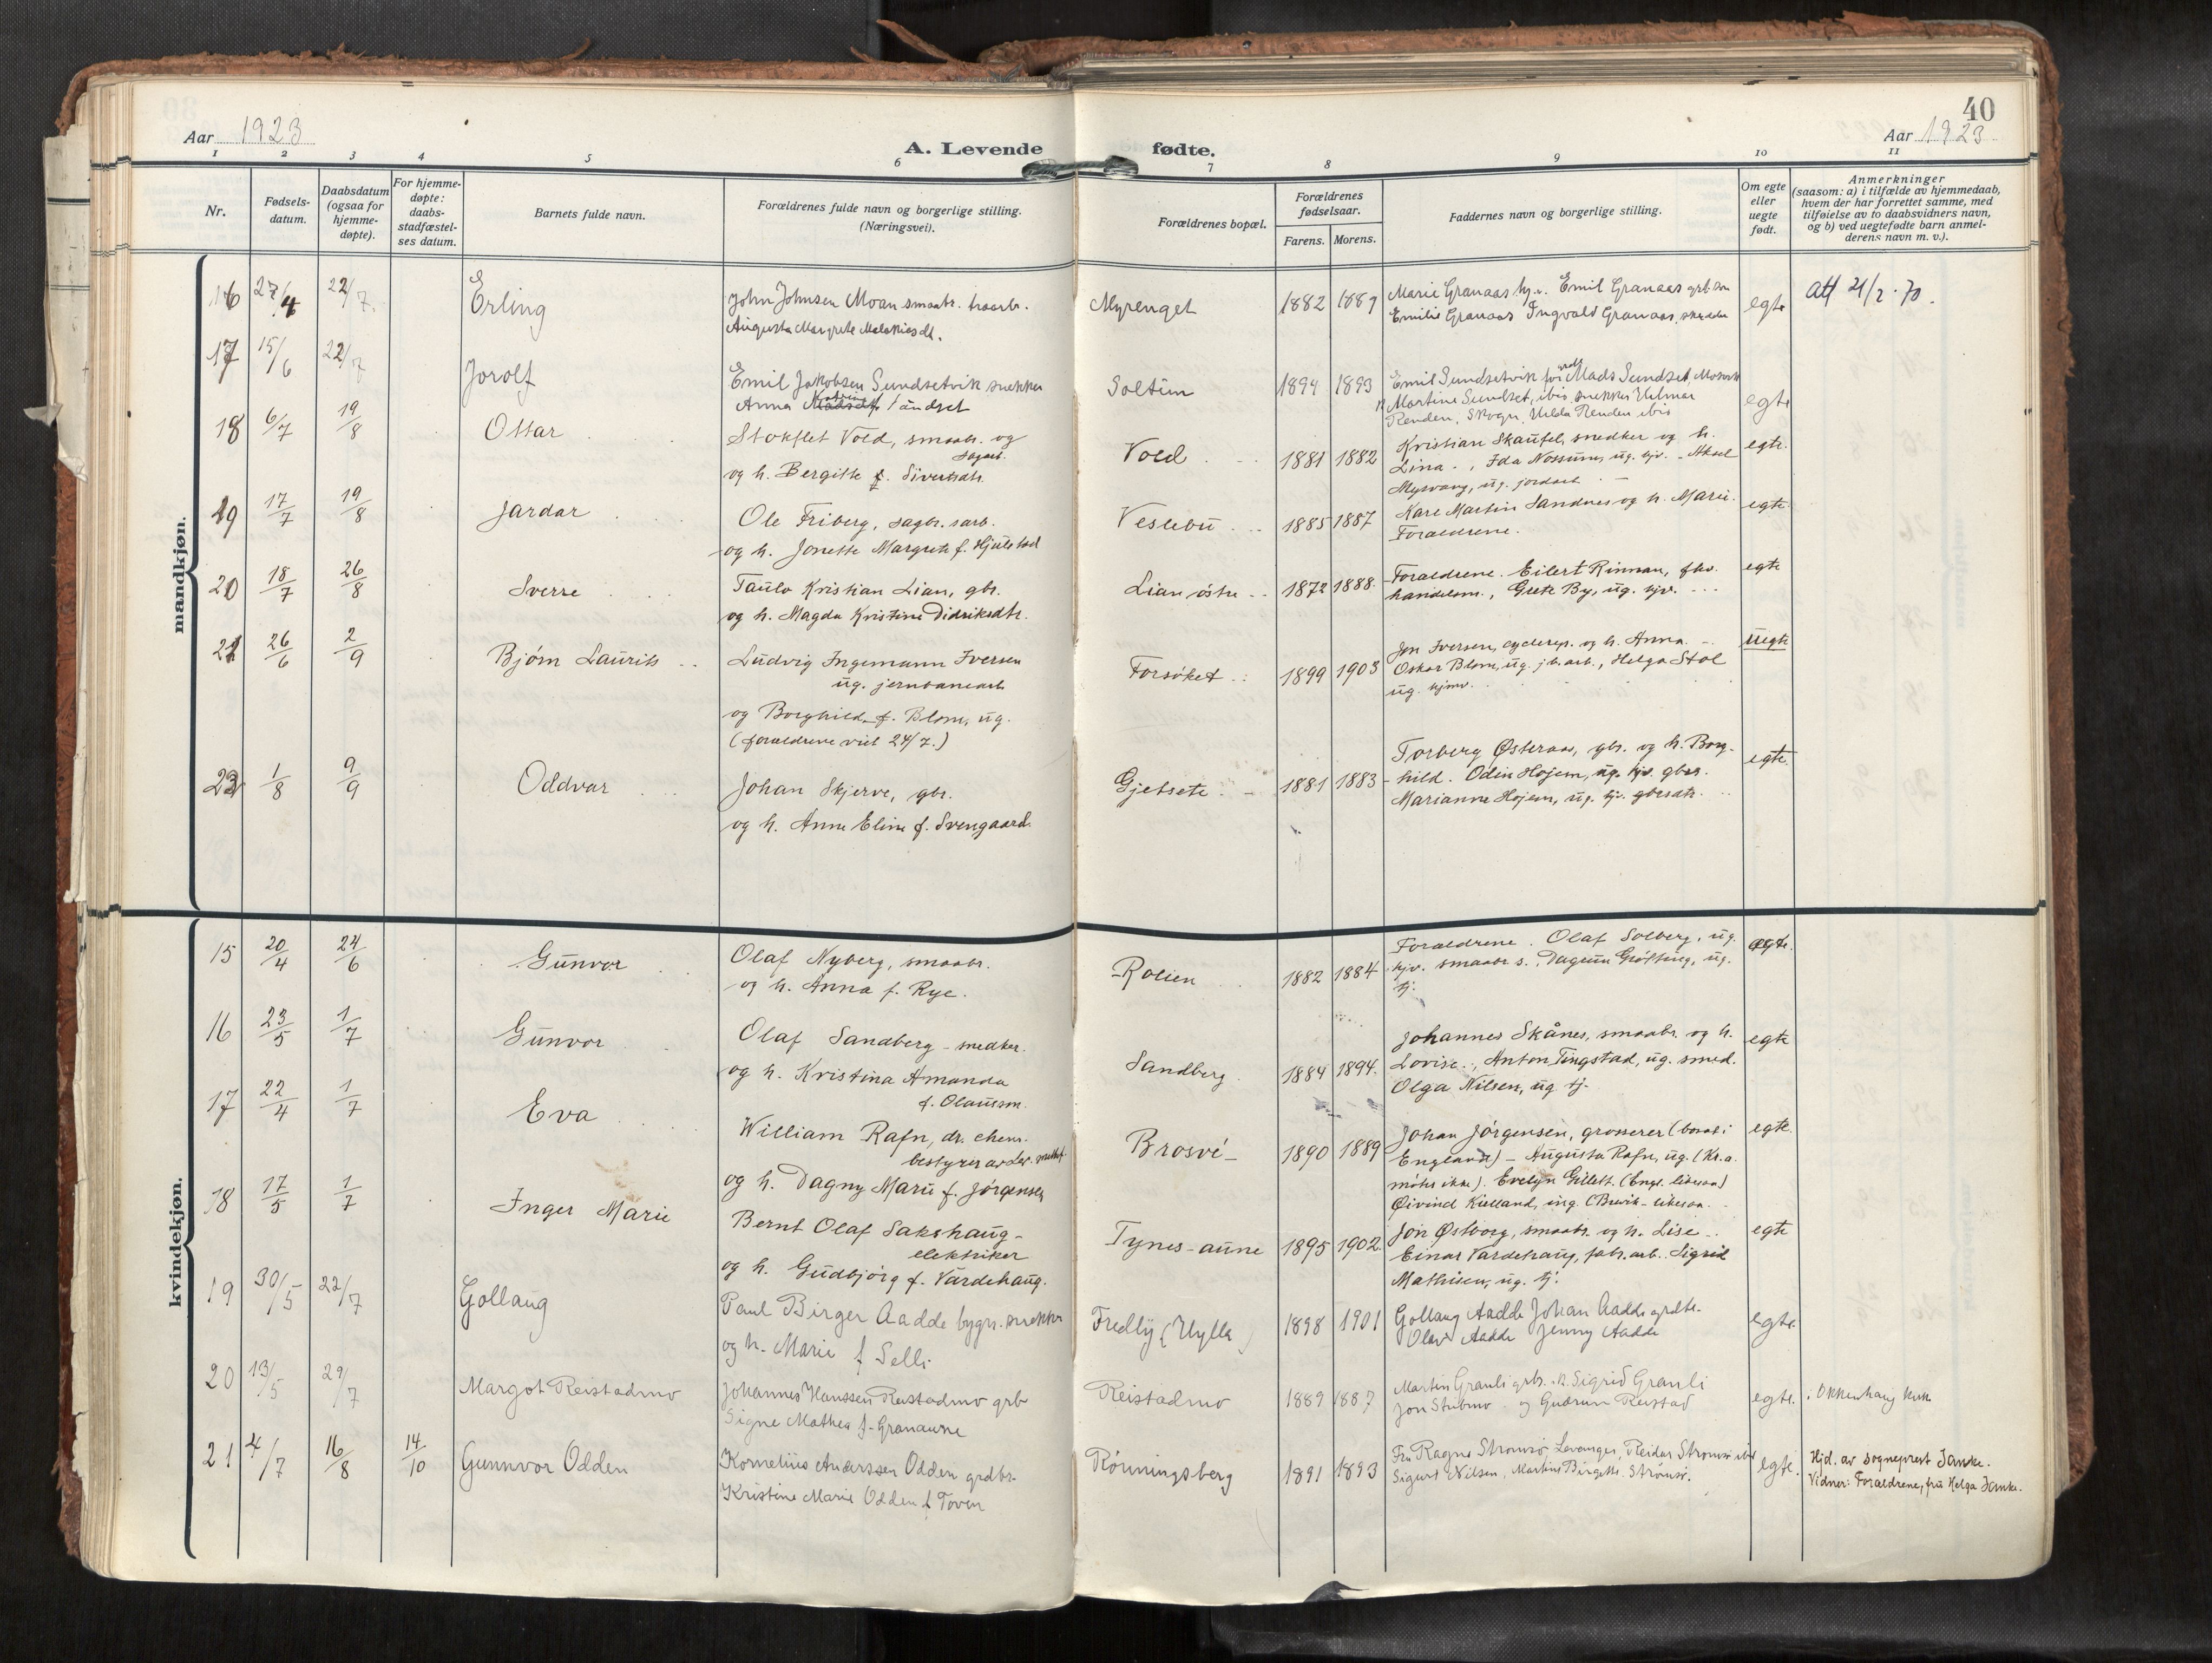 40
Aar 1923
A. Levende
fødte.
Aar 1923
1 2 3 4 5 6 7 8 9 10 11
Nr.
Fødsels-
datum.
Daabsdatum
(ogsaa for
hjemme-
døpte).
For hjemme-
døpte:
daabs-
stadfæstel-
ses datum.
Barnets fulde navn.
Forældrenes fulde navn og borgerlige stilling.
(Næringsvei).
Forældrenes bopæl.
Forældrenes
fødselsaar.
Farens. Morens.
Faddernes navn og borgerlige stilling.
Om egte
eller
uegte
født.
Anmerkninger
(saasom: a) i tilfælde av hjemmedaab,
hvem der har forrettet samme, med
tilføielse av to daabsvidners navn,
og b) ved uegtefødte barn anmel-
derens navn m. v.).
mandkjøn.
16 27/4 22/7 Erling
John Johnsen Moan smaabr.
Augusta Margrete
Myrenget 1882 1889
Marie Granaas Emil Granaas
Emilie Granaas Ingvald Granaas
egte
att 21/2.70.
17 15/6 22/7 Jorolf
Emil Jakobsen Sundsetvik snekker
Anna Katrine
Soltun 1894 1893
Emil Sundsetvik Mads Sundset,
Martine Sundset, ibid, snekker Hilmar
Renden, Skogn, Hilda Renden ibid
egte
18 6/7 19/8 Ottar
Stokflet Vold, smaabr. og
sagarb.
og h. Bergitte f. Sivertsdtr.
Vold 1881 1882
Kristian Skaufel, snedker og h.
Lina., Ida Nossum, ug. hjv. - Aksel
Myrvang, ug. jordarb.
egte
19 17/7 19/8 Jardar
Ole Friberg, sagbr.sarb.
og h. Jonette Margrete f. Hjulstad
Veslebu 1885 1887
Karl Martin Sandnes og h. Marie.
Forældrene.
egte
20 18/7 26/8 Sverre
Taulo Kristian Lian, gbr.
og h. Magda Kristine Didriksdtr.
Lian østre 1872 1888.
Forældrene. Eilert Rinnan, fhv.
handelsm., Grete By, ug. hjv.
egte
21 26/6 2/9 Bjørn Laurits
Ludvig Ingemann Iversen
ug. jernbanearb.
og Borghild f. Blom, ug.
(forældrene viet 24/7.)
Forsøket 1899 1903
Jon Iversen, og h. Anna.
Oskar Blom, ug. jb.arb., Helga Stol
ug. hjmv.
uegte
22 1/8 9/9 Oddvar
Johan Skjerve, gbr.
og h. Anne Eline f. Svengaard.
Gjetsete 1881 1883
Torberg Østeraas, gbr. og h. Borg-
hild. Odin Højem, ug. hjv. gbrs.
Marianne Højem, ug. hjv. gbrsdtr.
egte.
kvindekjøn.
15 20/4 24/6 Gunvor
Olaf Nyberg, smaabr.
og h. Anna f. Rye.
Rolien 1882 1884
Forældrene. Olaf Solberg, ug.
hjv. smaabr s., Dagrun Grøtting, ug.
tj.
egte.
16 23/5 1/7 Gunvor
Olaf Sandberg - snedker.
og h. Kristina Amanda
f. Olausson.
Sandberg 1884 1894.
Johannes Skånes, smaabr. og h.
Lovise., Anton Tingstad, ug. smed.
Olga Nilsen, ug. tj.
egte
17 22/4 1/7 Eva
William Rafn, dr. chem.
og h. Dagny Marie f. Jørgensen
Brosvé 1890 1889
Johan Jørgensen, grosserer (bosat i
England) - Augusta Rafn, ug. (Kr.a.
møter ikke). Evelyn Gillett. (Engl. likesaa)
Øivind Kielland, ing. (Buvik - likesaa.
egte
18 17/5 1/7 Inger Marie
Bernt Olaf Sakshaug -
elektriker
og h. Gudbjørg f. Vardehaug.
Tynes-aune 1895 1902.
Jon Østborg, smaabr. og h. Lise.
Einar Vardehaug, fabr.arb. Sigrid
Mathisen, ug. tj.
egte
19 30/5 22/7 Gollaug
Paul Birger Aadde bygn.snekker
og h. Marie f Selli
Fredly (Hylla) 1898 1901
Gollaug Aadde Johan Aadde grdbr.
Olav Aadde Jenny Aadde
egte
20 13/5 29/7 Margot Reistadmo
Johannes Hanssen Reistadmo grb
Signe Mathea f. Granaune
Reistadmo 1889 1887
Martin Granli grb. Sigrid Granli
Jon Stubmo og Gudrun Reistad
egte.
i Okkenhaug kirke
21 4/7 16/8 14/10 Gunnvor Odden
Kornelius Anderssen Odden grdbr.
Kristine Marie Odden f Toven
Rönningsberg 1891 1893
Fru Ragna Strømsø Levanger, Reidar Strømsø ibid
Sigurt Nilsen, Martine Birgitte Strømsø.
egte.
Hjd. av sogneprest Janke.
Vidner: Forældrene, fru Helga Janke.